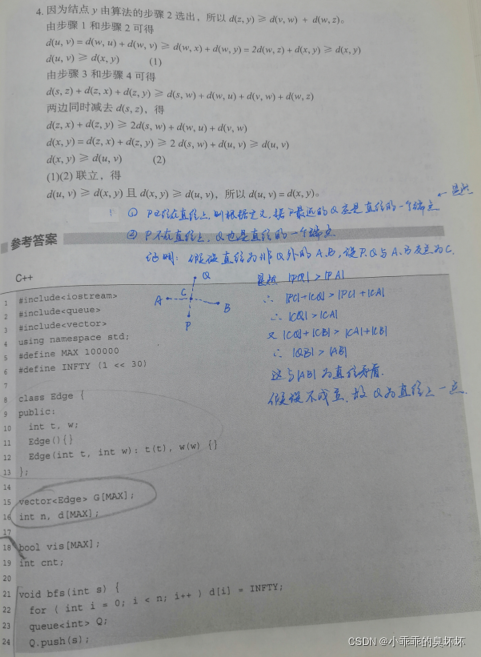 4. 因为结点 y 由算法的步骤 2 选出，所以 d(z, y) ≥ d(v, w) + d(w, z)。
由步骤 1 和步骤 2 可得
d(u, v) = d(w, u) + d(w, v) ≥ d(w, x) + d(w, y) = 2d(w, z) + d(x, y) ≥ d(x, y)
d(u, v) ≥ d(x, y) (1)
由步骤 3 和步骤 4 可得
d(s, z) + d(z, x) + d(z, y) ≥ d(s, w) + d(w, u) + d(v, w) + d(w, z)
两边同时减去 d(s, z)，得
d(z, x) + d(z, y) ≥ 2d(s, w) + d(w, u) + d(v, w)
d(x, y) = d(z, x) + d(z, y) ≥ 2 d(s, w) + d(u, v) ≥ d(u, v)
d(x, y) ≥ d(u, v) (2)
(1)(2) 联立，得
d(u, v) ≥ d(x, y) 且 d(x, y) ≥ d(u, v)，所以 d(u, v) = d(x, y)。
显然
① P在直径上，则根据定义，接下最远的Q定是直径的一个端点
② P不在直径上，Q也是直径的一个端点
证明：假设直径为非Q外的A、B，设P、Q与A、B交点为C.
参考答案
Q
A
C
B
P
显然 |PQ| > |PA|
∴ |PC|+|CQ| > |PC|+|CA|
∴ |CQ| > |CA|
又 |CQ|+|CB| > |CA|+|CB|
∴ |QB| > |AB|
这与|AB|为直径矛盾.
假设不成立，故Q为直径上一点.
C++
1 #include<iostream>
2 #include<queue>
3 #include<vector>
4 using namespace std;
5 #define MAX 100000
6 #define INFTY (1 << 30)
7
8 class Edge {
9 public:
10 int t, w;
11 Edge(){}
12 Edge(int t, int w): t(t), w(w) {}
13 };
14
15 vector<Edge> G[MAX];
16 int n, d[MAX];
17
18 bool vis[MAX];
19 int cnt;
20
21 void bfs(int s) {
22 for ( int i = 0; i < n; i++ ) d[i] = INFTY;
23 queue<int> Q;
24 Q.push(s);
CSDN @小乖乖的臭坏坏